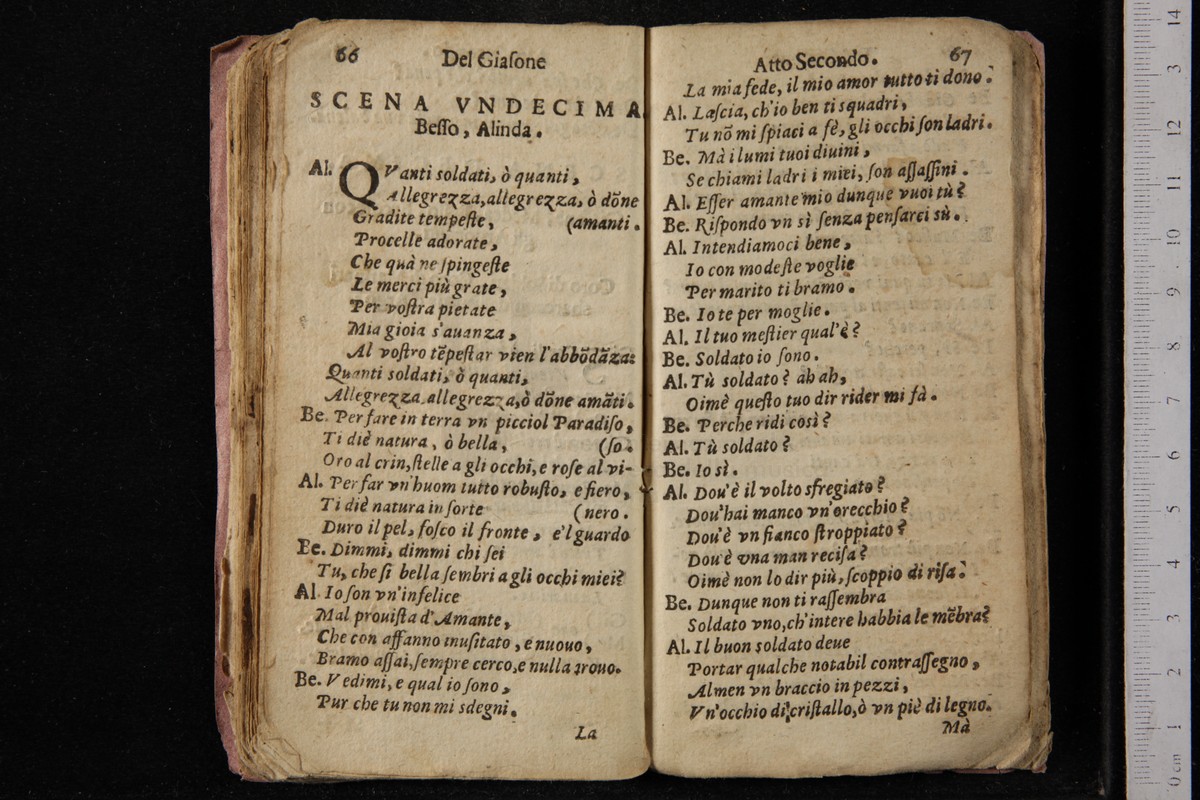 66 Del Giaſone
SCENA VNDECIMA
Beſſo, Alinda.
Al. QVanti soldati, ò quanti,
Allegrezza, allegrezza, ò dōne
Gradite tempeſte, (amanti.
Procelle adorate,
Che quà ne ſpingeſte
Le merci più grate,
Per voſtra pietate
Mia gioia s'auanza,
Al voſtro tēpeſtar vien l'abbōdāza:
Quanti soldati, ò quanti,
Allegrezza allegrezza, ò dōne amāti.
Be. Per fare in terra vn picciol Paradiſo,
Ti diè natura, ò bella, (ſo.
Oro al crin, ſtelle a gli occhi, e roſe al vi-
Al. Per far vn'huom tutto robuſto, e fiero,
Ti diè natura in ſorte (nero.
Duro il pel, foſco il fronte, e'l guardo
Be. Dimmi, dimmi chi ſei
Tu, che ſi bella ſembri a gli occhi miei?
Al. Io ſon vn'infelice
Mal prouiſta d'Amante,
Che con affanno inuſitato, e nuouo,
Bramo aſſai, ſempre cerco, e nulla trouo.
Be. Vedimi, e qual io ſono,
Pur che tu non mi sdegni.
La
Atto Secondo. 67
La mia fede, il mio amor tutto ti dono.
Al. Laſcia, ch'io ben ti squadri,
Tu nō mi ſpiaci a fè, gli occhi ſon ladri.
Be. Mà i lumi tuoi diuini,
Se chiami ladri i miei, ſon aſſaſſini.
Al. Eſſer amante mio dunque vuoi tù?
Be. Riſpondo vn sì ſenza penſarci sù.
Al. Intendiamoci bene,
Io con modeſte voglie
Per marito ti bramo.
Be. Io te per moglie.
Al. Il tuo meſtier qual'è?
Be. Soldato io ſono.
Al. Tù soldato? ah ah,
Oimè queſto tuo dir rider mi fà.
Be. Perche ridi così?
Al. Tù soldato?
Be. Io sì.
Al. Dou'è il volto sfregiato?
Dou'hai manco vn'orecchio?
Dou'è vn fianco ſtroppiato?
Dou'è vna man reciſa?
Oimè non lo dir più, ſcoppio di riſa.
Be. Dunque non ti raſſembra
Soldato vno, ch'intere habbia le mēbra?
Al. Il buon soldato deue
Portar qualche notabil contraſſegno,
Almen vn braccio in pezzi,
Vn'occhio di criſtallo, ò vn piè di legno.
Mà
14
13
12
11
10
9
8
7
6
5
4
3
2
1
0 cm